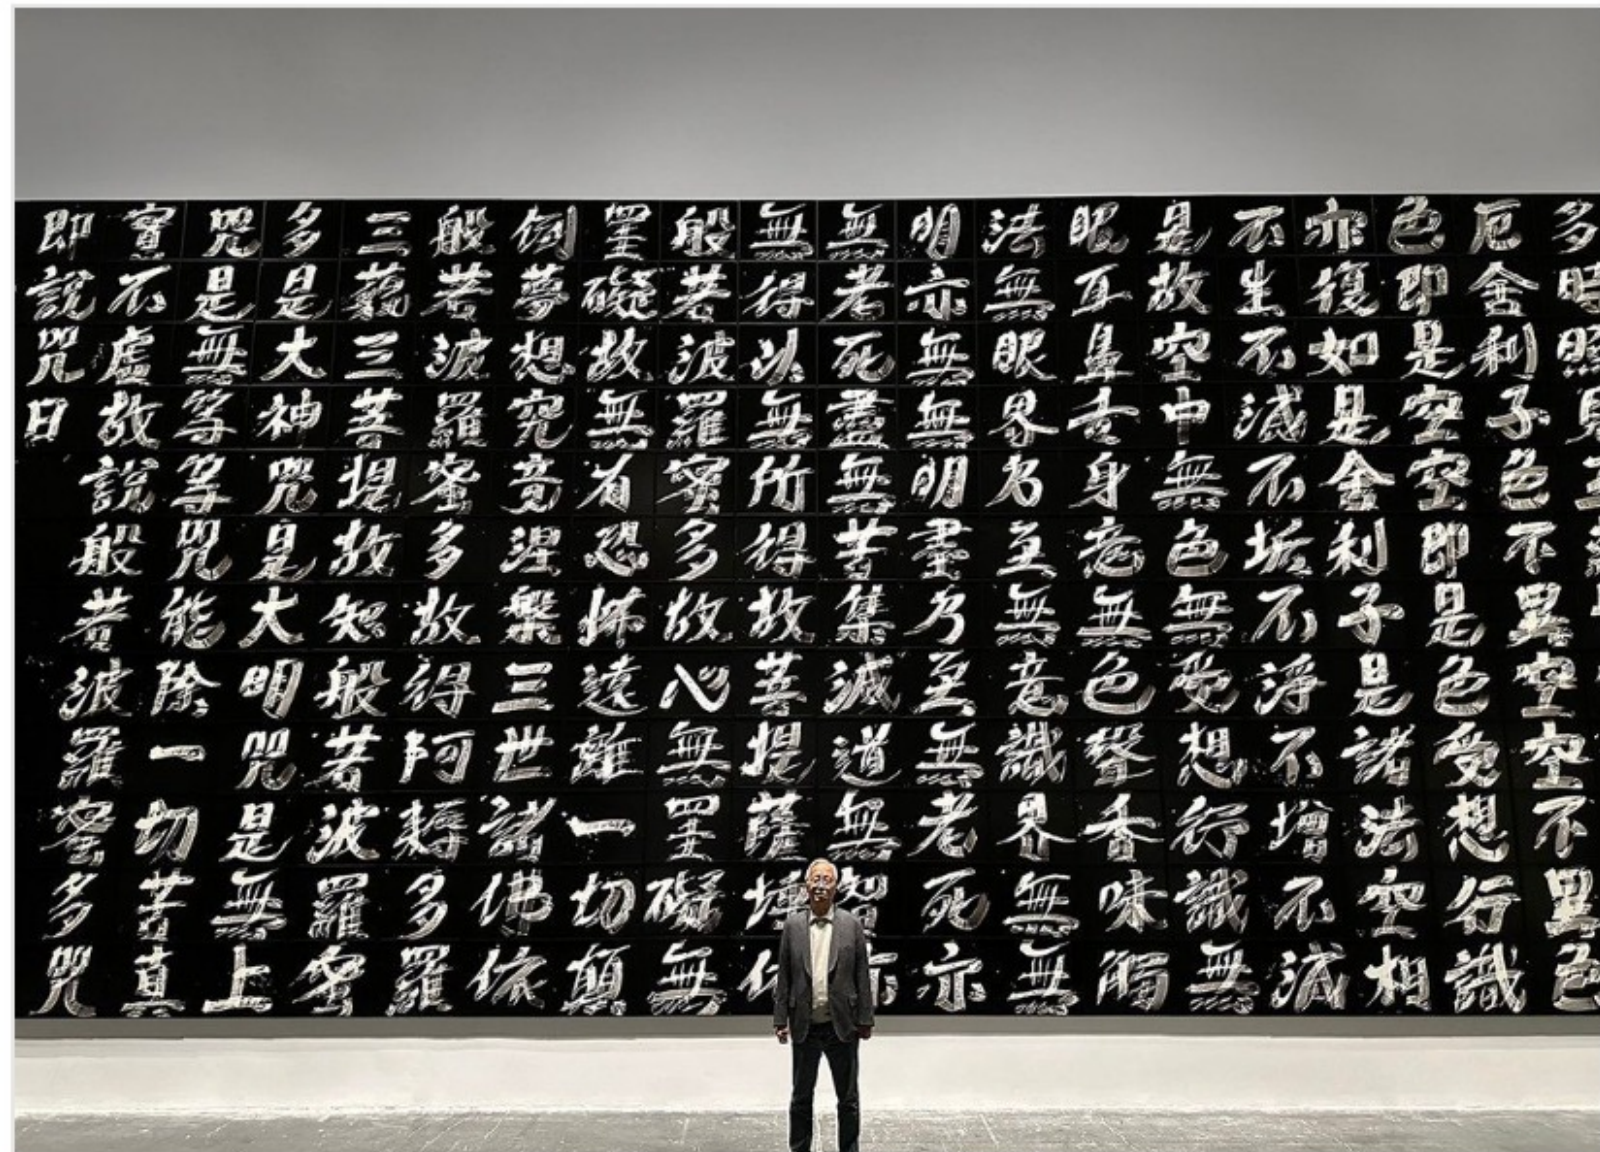 多時照見
厄舍利子色不異空空不異色
色即是空空即是色受想行識
亦復如是舍利子是諸法空相
不生不滅不垢不淨不增不減
是故空中無色無受想行識無
眼耳鼻舌身意無色聲香味觸
法無眼界乃至無意識界無無
明亦無無明盡乃至無老死亦
無老死盡無苦集滅道無智亦
無得以無所得故菩提薩埵依
般若波羅蜜多故心無罣礙無
罣礙故無有恐怖遠離一切顛
倒夢想究竟涅槃三世諸佛依
般若波羅蜜多故得阿耨多羅
三藐三菩提故知般若波羅蜜
多是大神咒是大明咒是無上
咒是無等等咒能除一切苦真
實不虛故說般若波羅蜜多咒
即說咒曰